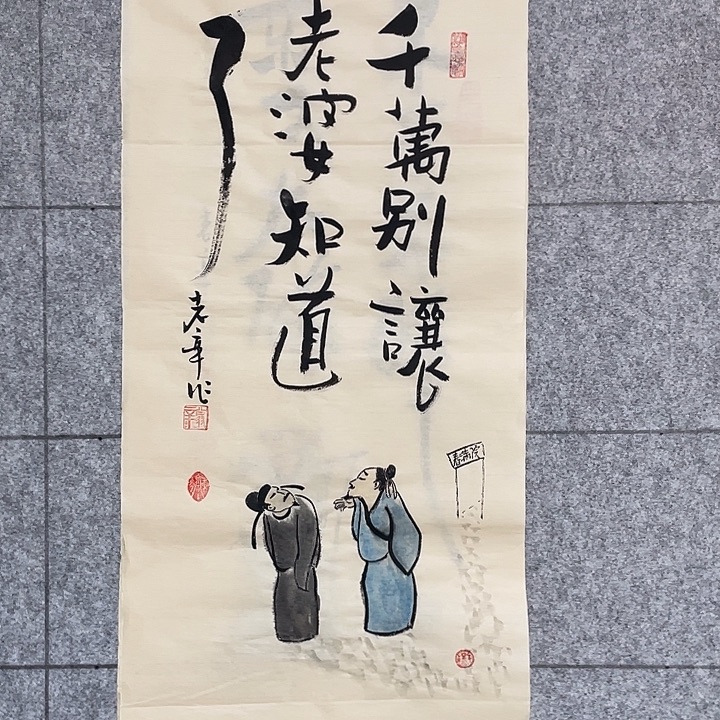 千萬別讓
老婆知道
了
老辛作